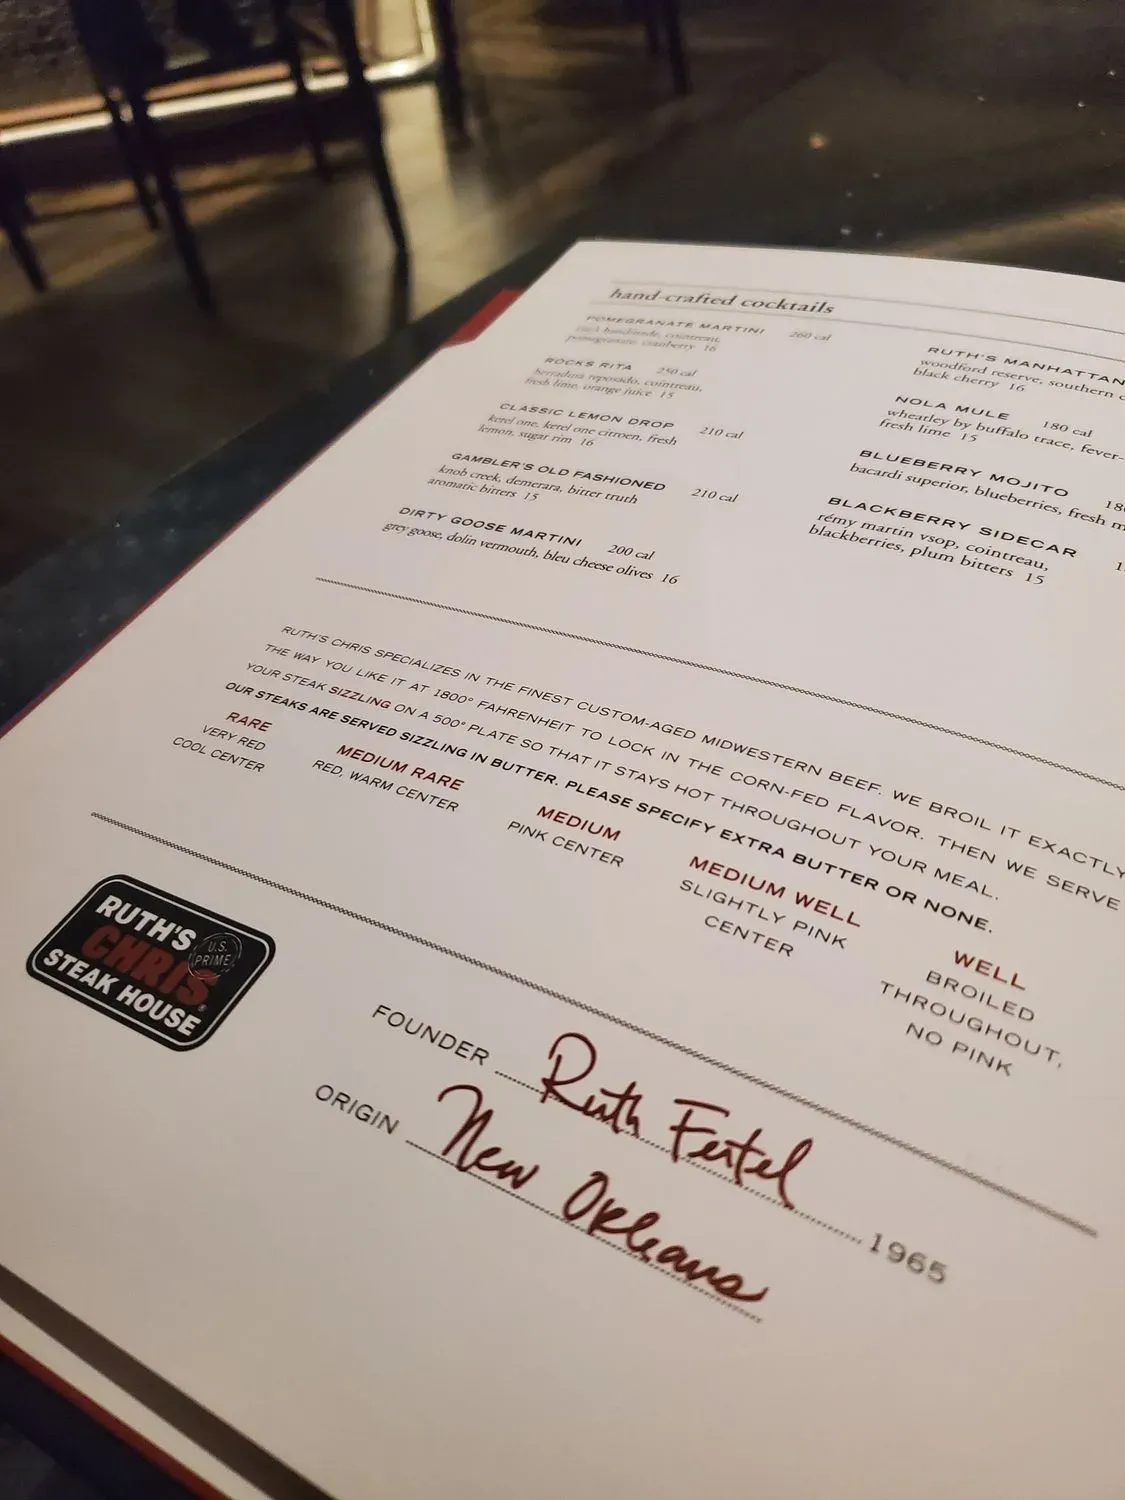 hand-crafted cocktails
POMEGRANATE MARTINI 260 cal
pomegranate, cranberry 16
ROCKS RITA 250 cal
herradura reposado, cointreau,
fresh lime, orange juice 15
CLASSIC LEMON DROP 210 cal
ketel one, ketel one citroen, fresh
lemon, sugar rim 16
GAMBLER'S OLD FASHIONED 210 cal
knob creek, demerara, bitter truth
aromatic bitters 15
DIRTY GOOSE MARTINI 200 cal
grey goose, dolin vermouth, bleu cheese olives 16
RUTH'S MANHATTAN
woodford reserve, southern
black cherry 16
NOLA MULE 180 cal
wheatley by buffalo trace, fever-
fresh lime 15
BLUEBERRY MOJITO
bacardi superior, blueberries, fresh
BLACKBERRY SIDECAR
rémy martin vsop, cointreau,
blackberries, plum bitters 15
RUTH'S CHRIS SPECIALIZES IN THE FINEST CUSTOM-AGED MIDWESTERN BEEF. WE BROIL IT EXACTLY
THE WAY YOU LIKE IT AT 1800° FAHRENHEIT TO LOCK IN THE CORN-FED FLAVOR. THEN WE SERVE
YOUR STEAK SIZZLING ON A 500° PLATE SO THAT IT STAYS HOT THROUGHOUT YOUR MEAL.
OUR STEAKS ARE SERVED SIZZLING IN BUTTER. PLEASE SPECIFY EXTRA BUTTER OR NONE.
RARE
VERY RED
COOL CENTER
MEDIUM RARE
RED, WARM CENTER
MEDIUM
PINK CENTER
MEDIUM WELL
SLIGHTLY PINK
CENTER
WELL
BROILED
THROUGHOUT,
NO PINK
RUTH'S
CHRIS
U.S.
PRIME
STEAK HOUSE
FOUNDER Ruth Fertel 1965
ORIGIN New Orleans